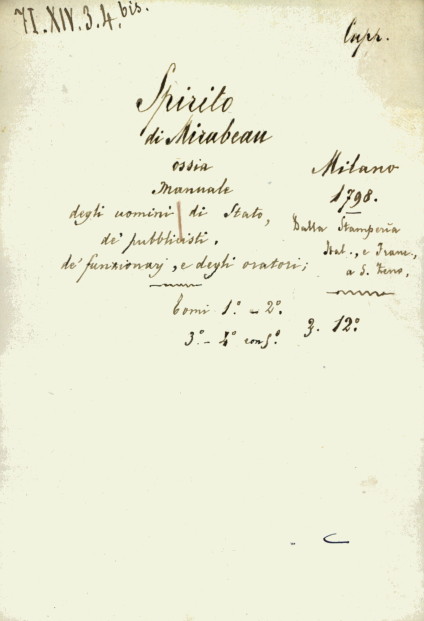 71.XIV.3.4.bis.
Capr.
Spirito
di Mirabeau
ossia
Manuale
degli uomini di Stato,
de' pubblicisti,
de' funzionarj, e degli oratori;
Milano
1798.
Dalla Stamperia
Ital., e Franc.,
a S. Zeno.
Tomi 1º. - 2º.
3º. - 4º cong.º
3. 12º.